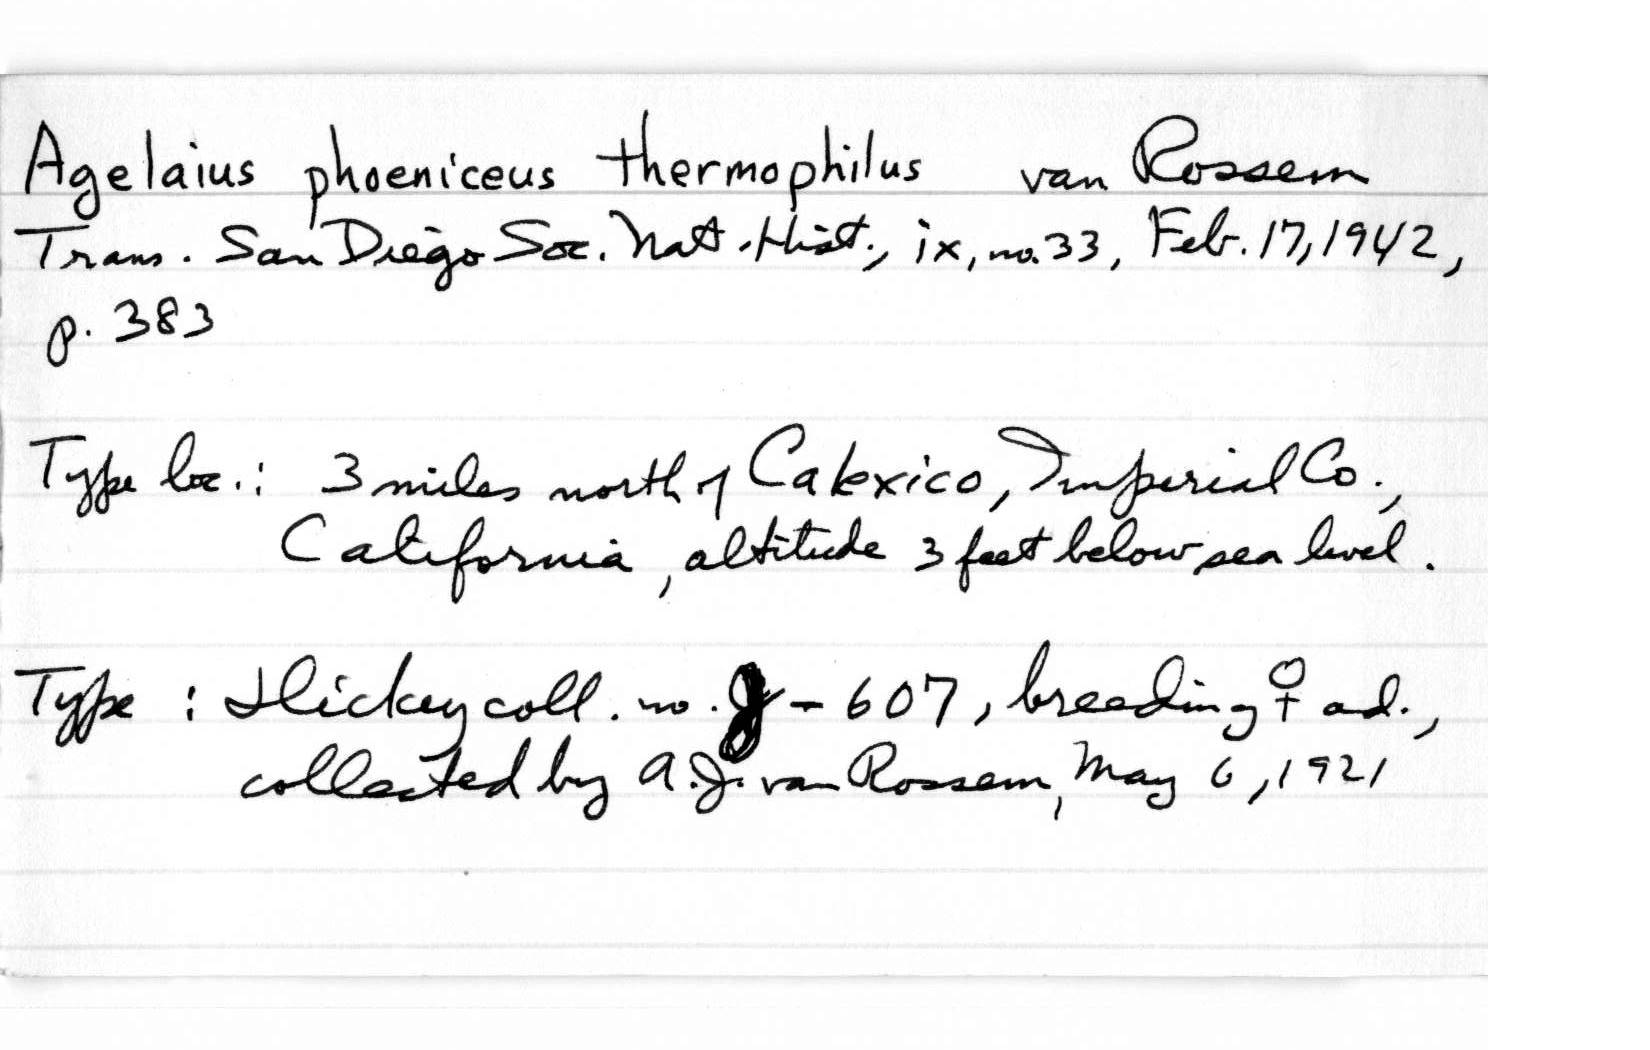 Agelaius phoeniceus thermophilus van Rossem
Trans. San Diego Soc. Nat. Hist., ix, no. 33, Feb. 17, 1942,
p. 383
Type loc.: 3 miles north of Calexico, Imperial Co.,
California, altitude 3 feet below sea level.
Type: Hickey coll. no. J-607, breeding ♀ ad.,
collected by A.J. van Rossem, May 6, 1921